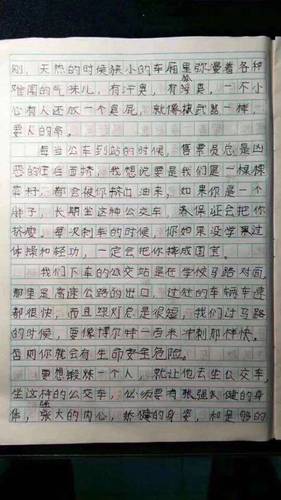 刚，天热的时候狭小的车厢里弥漫着各种
难闻的气味儿，有汗臭，有狐臭，一不小
心有人还放一个臭屁，就像核武器一样，
要人的命。
每当公车到站的时候，售票员总是凶
恶的往后面挤，我想说要是我们是一棵棵
菜籽，都会被你挤出油来，如果你是一个
胖子，长期坐这种公交车，我保证会把你
挤瘦。每次刹车的时候，你如果没学习过
体操和轻功，一定会把你摔成国宝。
我们下车的公交站是在学校马路对面，
那里是高速公路的出口，过往的车辆车速
都很快，而且绿灯总是很短，我们过马路
的时候，要像博尔特一百米冲刺那样快。
否则你就会有生命安全危险。
要想锻炼一个人，就让他去坐公交车，
坐这种的公交车，必须要有强大健的身
体，强大的内心，矫健的身姿，和足够的